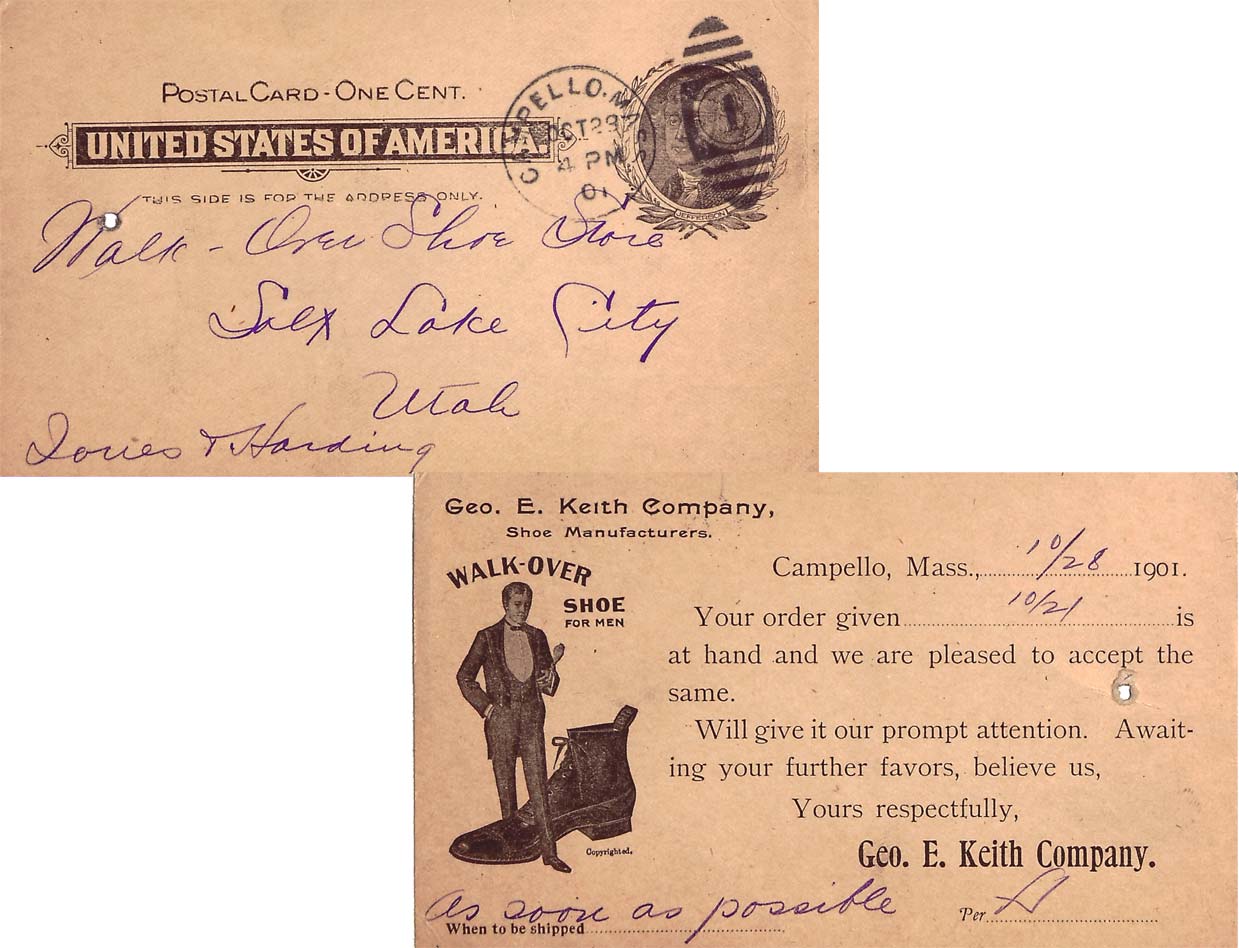 POSTAL CARD - ONE CENT.
UNITED STATES OF AMERICA.
THIS SIDE IS FOR THE ADDRESS ONLY.
CAMPELLO. MASS
OCT 28
4 PM
01
1
JEFFERSON
Walk-Over Shoe Store
Salt Lake City
Utah
Jones & Harding
Geo. E. Keith Company,
Shoe Manufacturers.
WALK-OVER
SHOE
FOR MEN
Copyrighted.
Campello, Mass., 10/28 1901.
Your order given 10/21 is
at hand and we are pleased to accept the
same.
Will give it our prompt attention. Await-
ing your further favors, believe us,
Yours respectfully,
Geo. E. Keith Company.
When to be shipped As soon as possible
Per